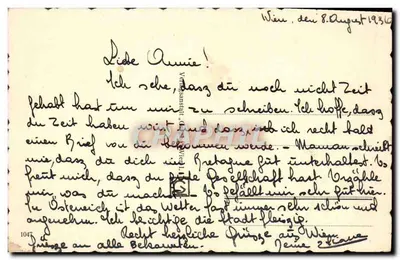 Wien, den 8. August 1936
Liebe Annie!
Ich sehe, dasz du noch nicht Zeit
gehabt hast um mir zu schreiben. Ich hoffe, dasz
du Zeit haben wirst und dasz ich recht bald
einen Brief von dir bekommen werde. – Maman schreibt
mir, dasz du dich in Bretagne gut unterhaltest. Es
freut mich, dasz du gute Gesellschaft hast. Erzähle
mir was du machst. Es gefällt mir sehr gut hier.
In Österreich ist das Wetter fast immer sehr schön und
angenehm. Ich besichtige die Stadt fleiszig.
Recht herzliche Grüsse aus Wien
Grüsse an alle Bekannten. Deine
1047